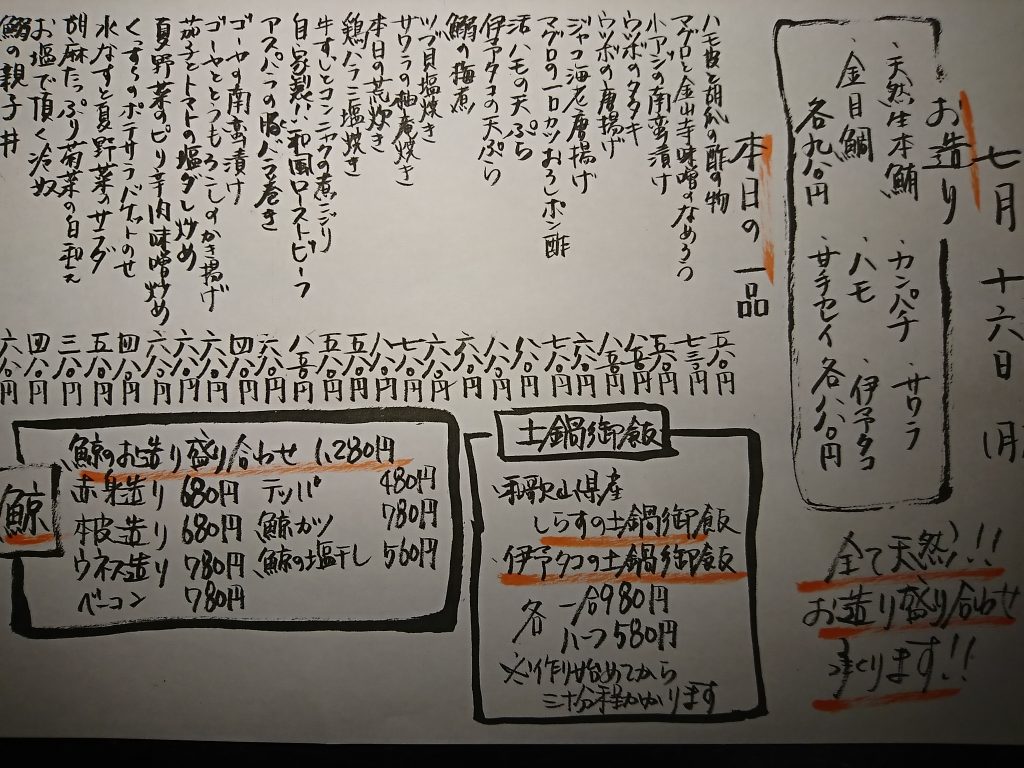 七月十六日(月)
お造り
・天然生本鮪
・金目鯛
各九八〇円
・カンパチ ・サワラ
・ハモ ・伊予タコ
・サキセイ 各八八〇円
全て天然!!
お造り盛り合わせ
承ります!!
本日の一品
ハモ皮と胡瓜の酢の物 五八〇円
マグロと金山寺味噌のなめろう 七三〇円
小アジの南蛮漬け 五八〇円
ウツボのタタキ 八五〇円
ウツボの唐揚げ 八五〇円
ジャコ海老唐揚げ 六八〇円
マグロの一口カツおろしポン酢 七八〇円
活ハモの天ぷら 八八〇円
伊予タコの天ぷら 八八〇円
鰯の梅煮 六八〇円
ツブ貝塩焼き 六八〇円
サワラの柚庵焼き 七八〇円
本日の荒炊き 八八〇円
鶏ハラミ塩焼き 五八〇円
牛すじとコンニャクの煮こごり 五八〇円
自家製!!和風ローストビーフ 八五〇円
アスパラの豚バラ巻き 六八〇円
ゴーヤの南蛮漬け 四八〇円
ゴーヤととうもろこしのかき揚げ 六八〇円
茄子とトマトの塩ダレ炒め 六八〇円
夏野菜のピリ辛肉味噌炒め 六八〇円
くつろのポテサラバゲットのせ 四八〇円
水なすと夏野菜のサラダ 五八〇円
胡麻たっぷり菊菜の白和え 三八〇円
お塩で頂く冷奴 四八〇円
鰯の親子丼 六八〇円
土鍋御飯
・和歌山県産
しらすの土鍋御飯
・伊予タコの土鍋御飯
各 一合980円
ハーフ580円
※作り始めてから
三十分程かかります
鯨
・鯨のお造り盛り合わせ 1,280円
赤身造り 680円
本皮造り 680円
ウネス造り 780円
ベーコン 780円
テッパ 480円
鯨カツ 780円
鯨の塩干し 560円